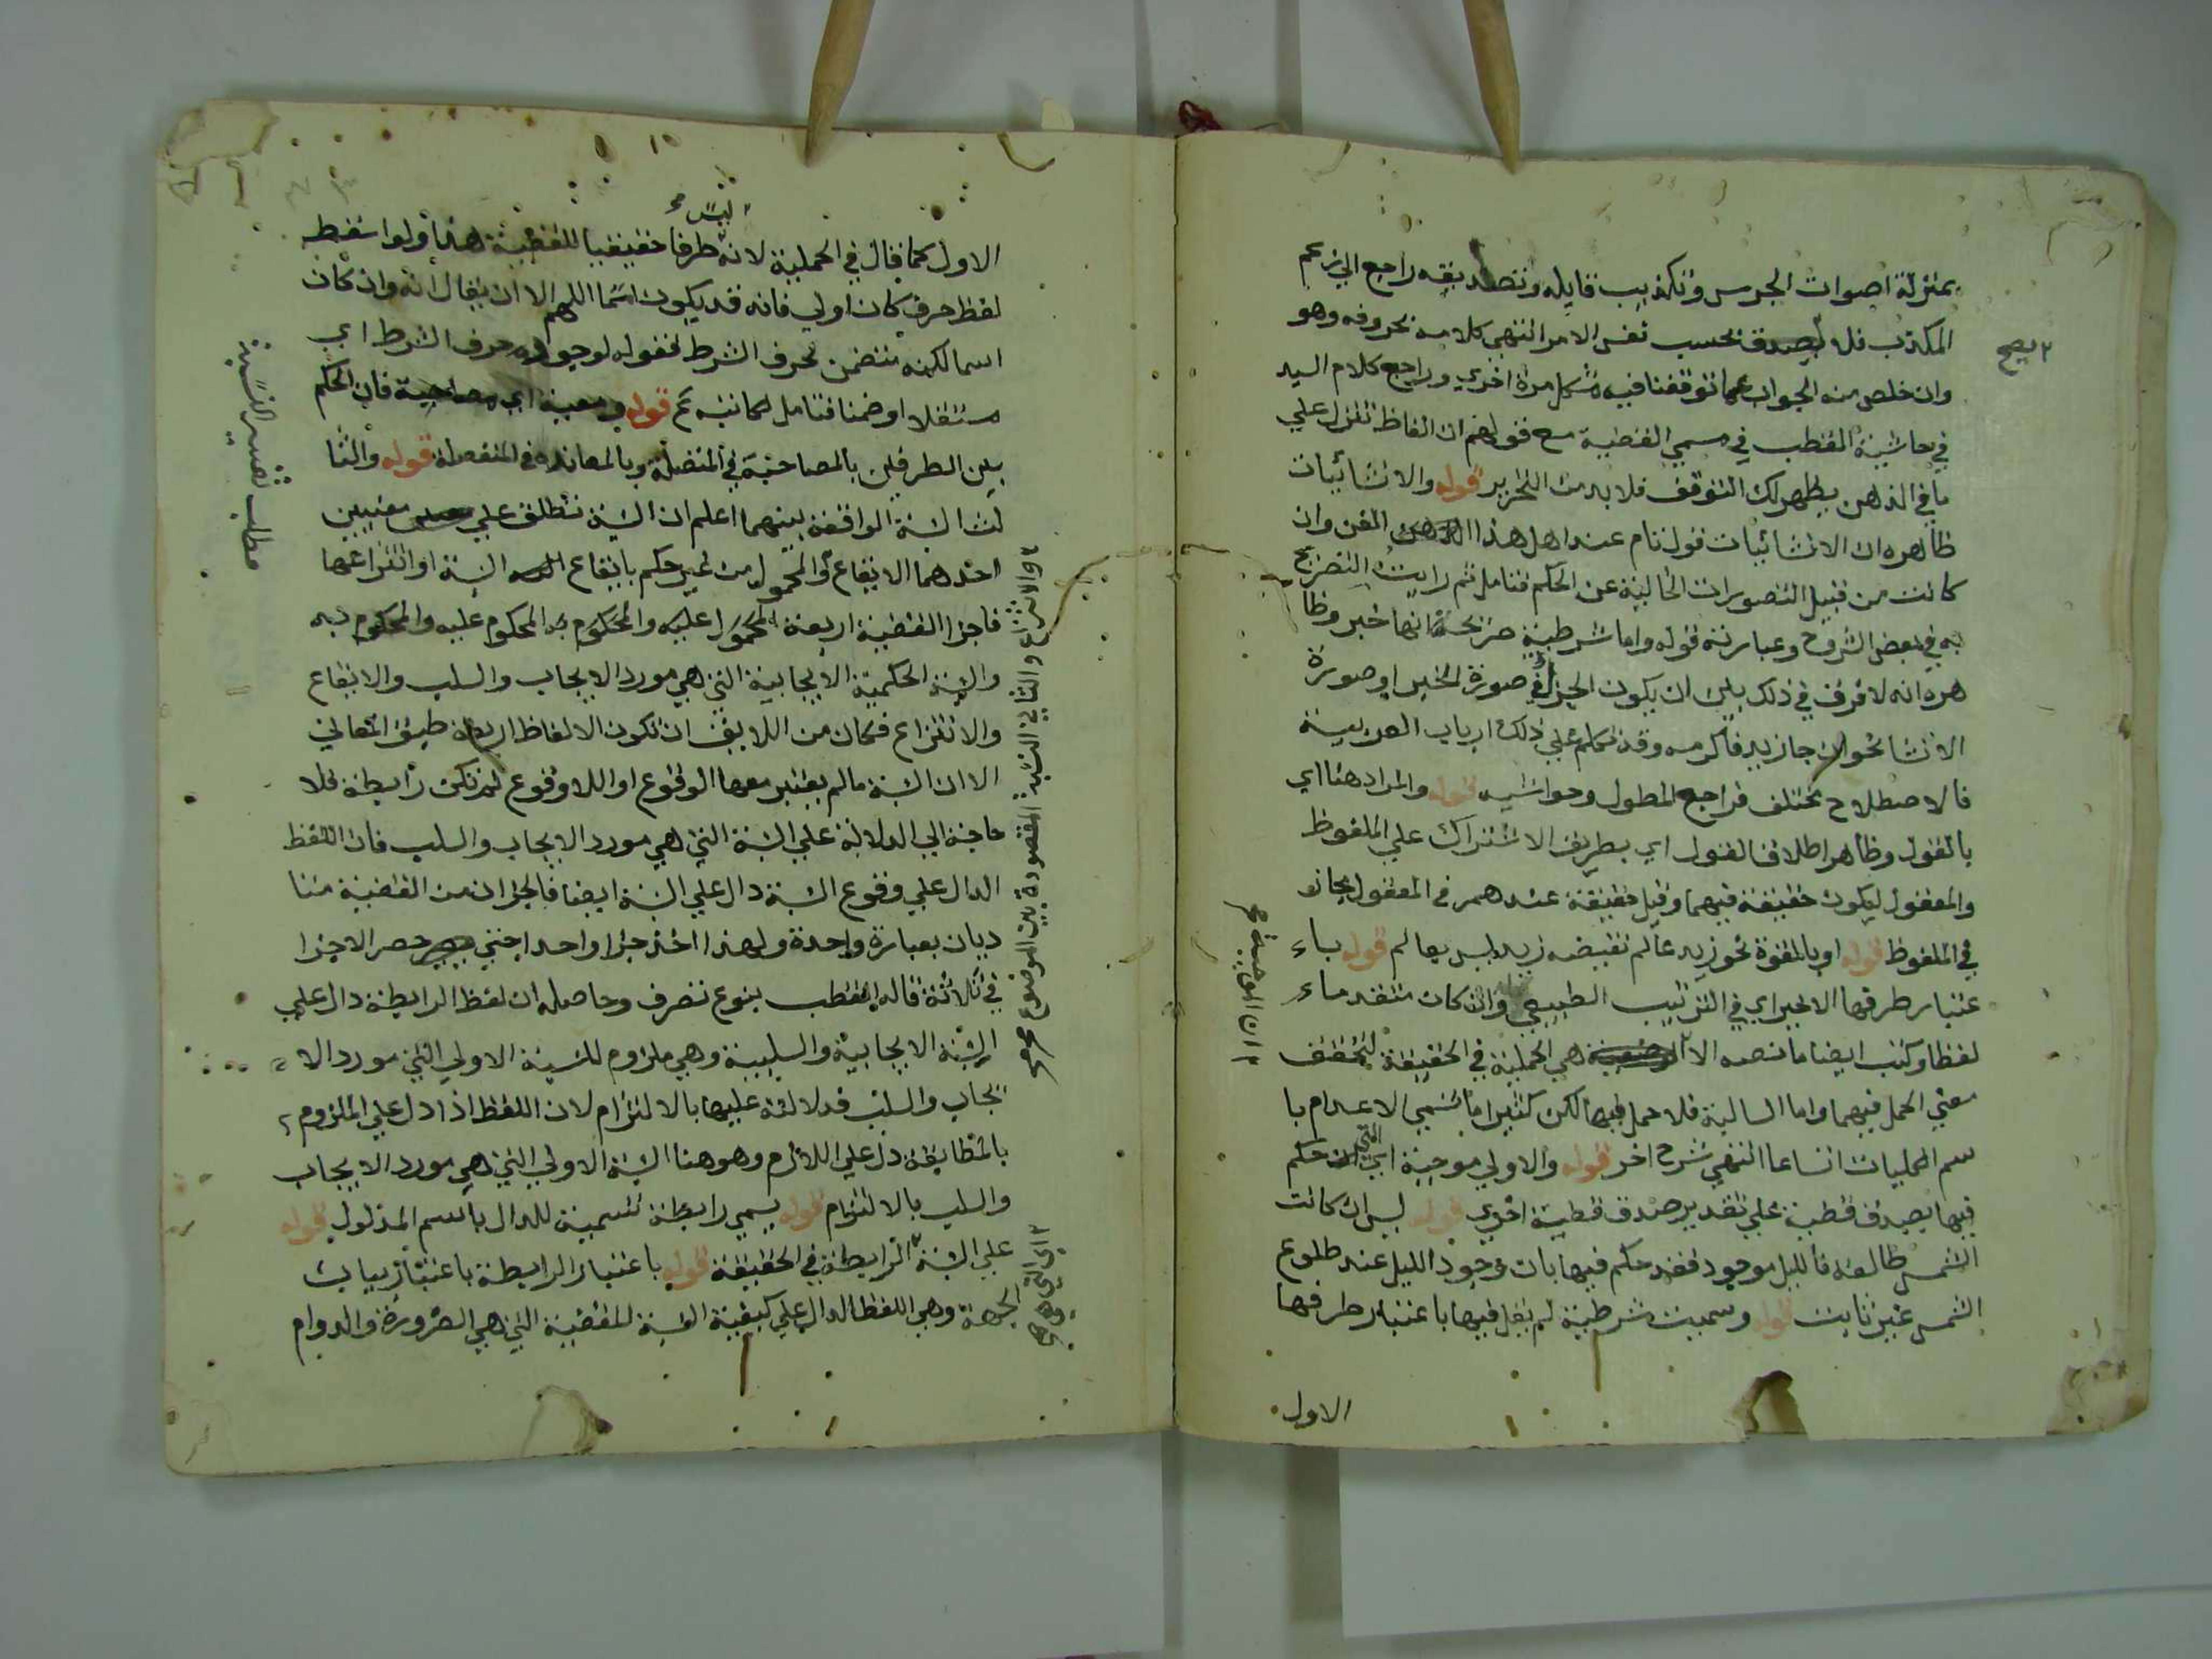 بمنزلة اصوات الجرس وتكذيب قايله وتصديقه راجع الي زعم
المكذب فلا بحسب نفس الامر انتهى كلامه بحروفه وهو
٢ يصح
وان خلص منه الجواب عما توقفنا فيه مشكل مرة اخري وراجع كلام السيد
في حاشية القطب في مسمي القضية مع قولهم ان الفاظ تنزل علي
ما في الذهن يظهر لك التوقف فلا بد من التحرير قوله والانشائيات
ظاهره ان الانشائيات قول تام عند اهل هذا الفن وان
كانت من قبيل التصورات الخالية عن الحكم فتامل ثم رايت التصريح
به في بعض الشروح وعبارته قوله واما شرطية صريحة انها خبر وظا
هره انه لا فرق في ذلك بين ان يكون الجزا في صورة الخبر او صورة
الانشا نحو ان جا زيد فاكرمه وقد تكلم علي ذلك ارباب العربية
فالاصطلاح مختلف فراجع المطول وحواشيه قوله والمراد هنا اي
بالقول وظاهر اطلاق القول اي بطريق الاشتراك علي الملفوظ
والمعقول ليكون حقيقة فيهما وقيل حقيقة عندهم في المعقول مجاز
في الملفوظ قوله او بالقوة نحو زيد عالم نقيضه زيد ليس بعالم قوله باء
عتبار طرفها الاخير اي في الترتيب الطبيعي وان كان متقدماء
لفظا وكتب ايضا ما نصه الا هي الحملية في الحقيقة لتحقق
٢ ان الموجبة صح
معني الحمل فيهما واما السالبة فلا حمل فيها لكن كثيرا ما تسمي الاعدام با
سم الحمليات اتساعا انتهي شرح اخر قوله والاولي موجبة اي التي حكم
فيها بصدق قضية علي تقدير صدق قضية اخري قوله ليس ان كانت
الشمس طالعة فالليل موجود فقد حكم فيها بان وجود الليل عند طلوع
الشمس غير ثابت قوله وسميت شرطية لم يقل فيها باعتبار طرفها
الاول
ليس صح
الاول كما قال في الحملية لانه طرفا حقيقيا للقضية هذا ولو اسقط
لفظ حرف كان اولي فانه قد يكون اسما اللهم الا ان يقال انه وان كان
اسما لكنه متضمن لحرف الشرط فقوله لوجود حرف الشرط اي
مستقلا او ضمنا فتامل لكاتبه ع قوله ومعية اي مصاحبة فان الحكم
بين الطرفين بالمصاحبة في المتصلة وبالمعاندة في المنفصلة قوله والثا
لث النسبة الواقعة بينهما اعلم ان النسبة تطلق علي معنيين
احدهما الايقاع والمحمول من غير حكم بايقاع النسبة او انتزاعها
فاجزا القضية اربعة المحكوم عليه والمحكوم به
والنسبة الحكمية الايجابية التي هي مورد الايجاب والسلب والايقاع
والانتزاع فكان من اللايق ان تكون الالفاظ اربعة طبق المعاني
الا ان النسبة ما لم يعتبر معها الوقوع او اللاوقوع لم تكن رابطة فلا
حاجة الي الدلالة علي النسبة التي هي مورد الايجاب والسلب فان اللفظ
الدال علي وقوع النسبة دال علي النسبة ايضا فالجزان من القضية متا
ديان بعبارة واحدة ولهذا اخذ جزا واحدا حتي حصر الاجزا
في ثلاثة قاله القطب بنوع تصرف وحاصله ان لفظ الرابطة دال علي
النسبة الايجابية والسلبية وهي ملزوم للنسبة الاولي التي مورد الا
يجاب والسلب فدلالته عليها بالالتزام لان اللفظ اذا دل علي الملزوم
بالمطابقة دل علي اللازم وهو هنا النسبة الاولي التي هي مورد الايجاب
والسلب بالالتزام قوله يسمي رابطة تسمية للدال باسم المدلول قوله
علي النسبة الرابطة في الحقيقة قوله باعتبار الرابطة باعتبار بيان
الجهة وهي اللفظ الدال علي كيفية النسبة للقضية التي هي الضرورة والدوام
مطلب تفسير النسبة
النسبة المقصودة بين الموضوع صح